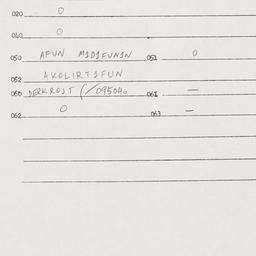 020 0
040 0
050 AFUN MIDIFUNIN 051 0
052 AKOLIRTIFUN
060 DERKROJT (/095040 061 —
062 0 063 —